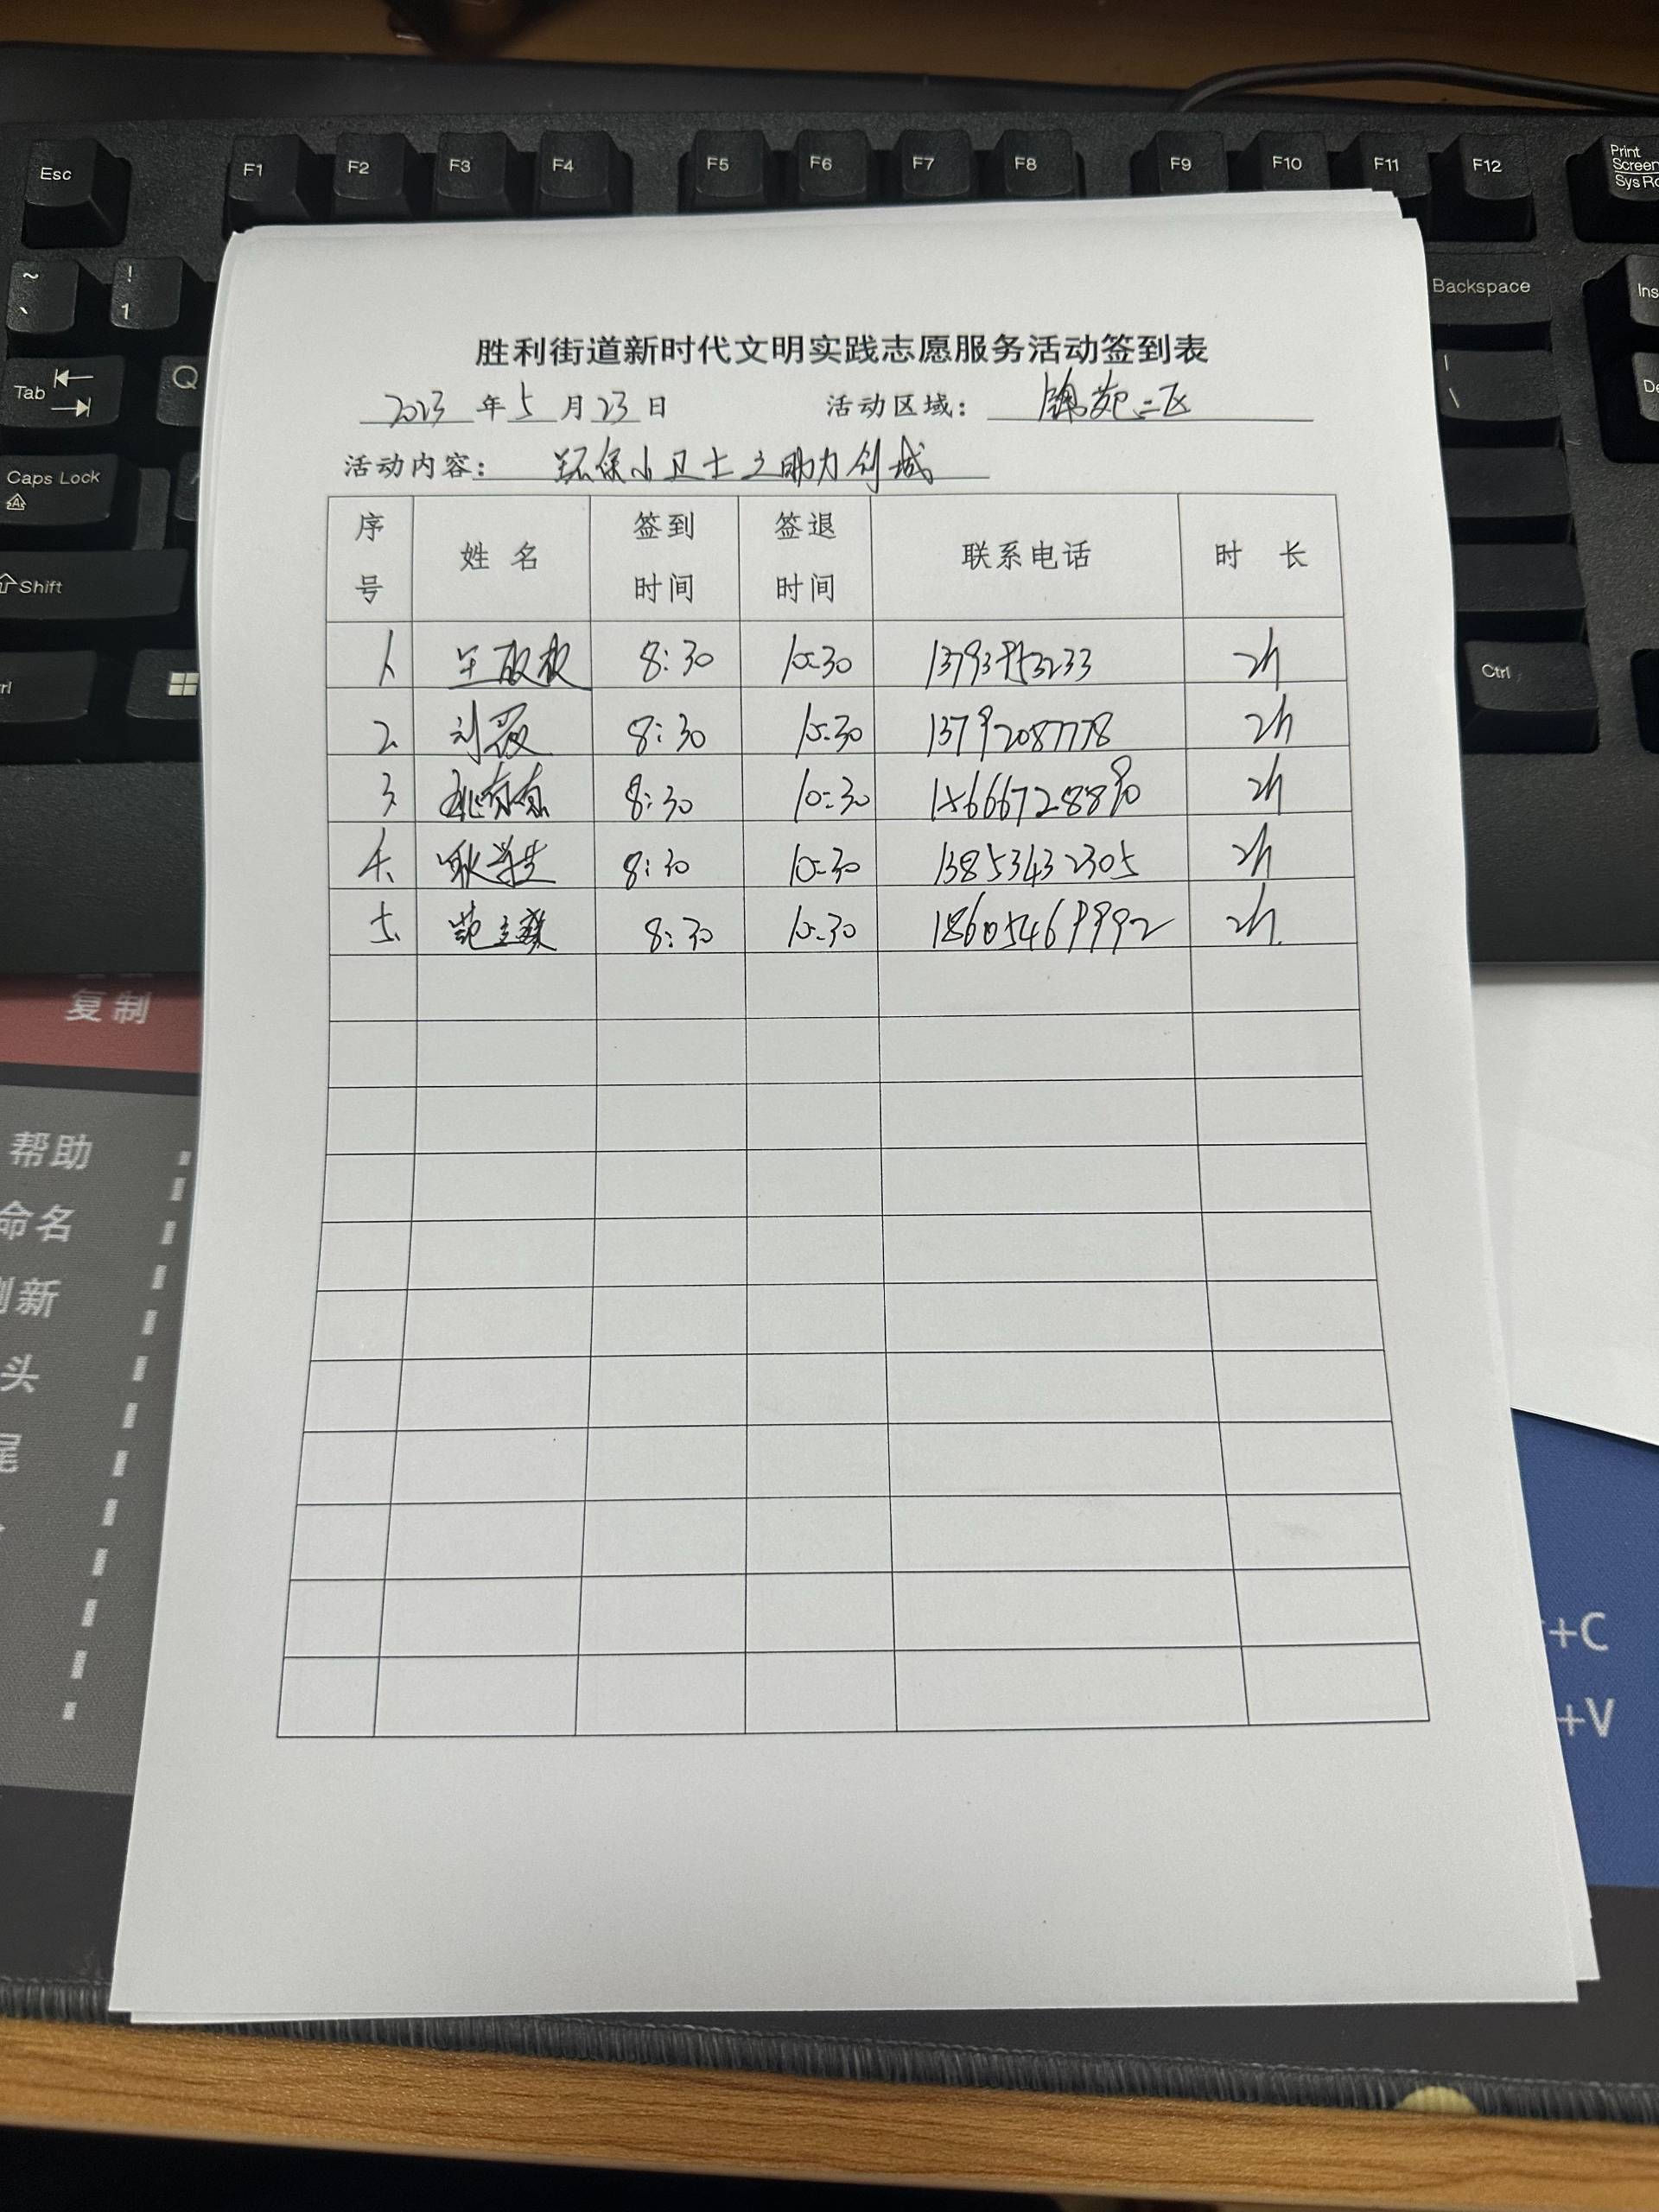 Esc F1 F2 F3 F4 F5 F6 F7 F8 F9 F10 F11 F12 Print
Screen
~ ! Backspace Ins
1
Tab Q
Caps Lock
Shift
Ctrl
胜利街道新时代文明实践志愿服务活动签到表
2023 年 5 月 23 日 活动区域: 锦苑二区
活动内容: 环保小卫士 助力创城
序号 姓 名 签到时间 签退时间 联系电话 时 长
1. 8:30 10:30 2h
2. 刘霞 8:30 10:30 13792087778 2h
3. 8:30 10:30 2h
4. 8:30 10:30 13853432305 2h
5. 8:30 10:30 18605469992 2h.
复制
帮助
命名
刷新
头
尾
+C
+V